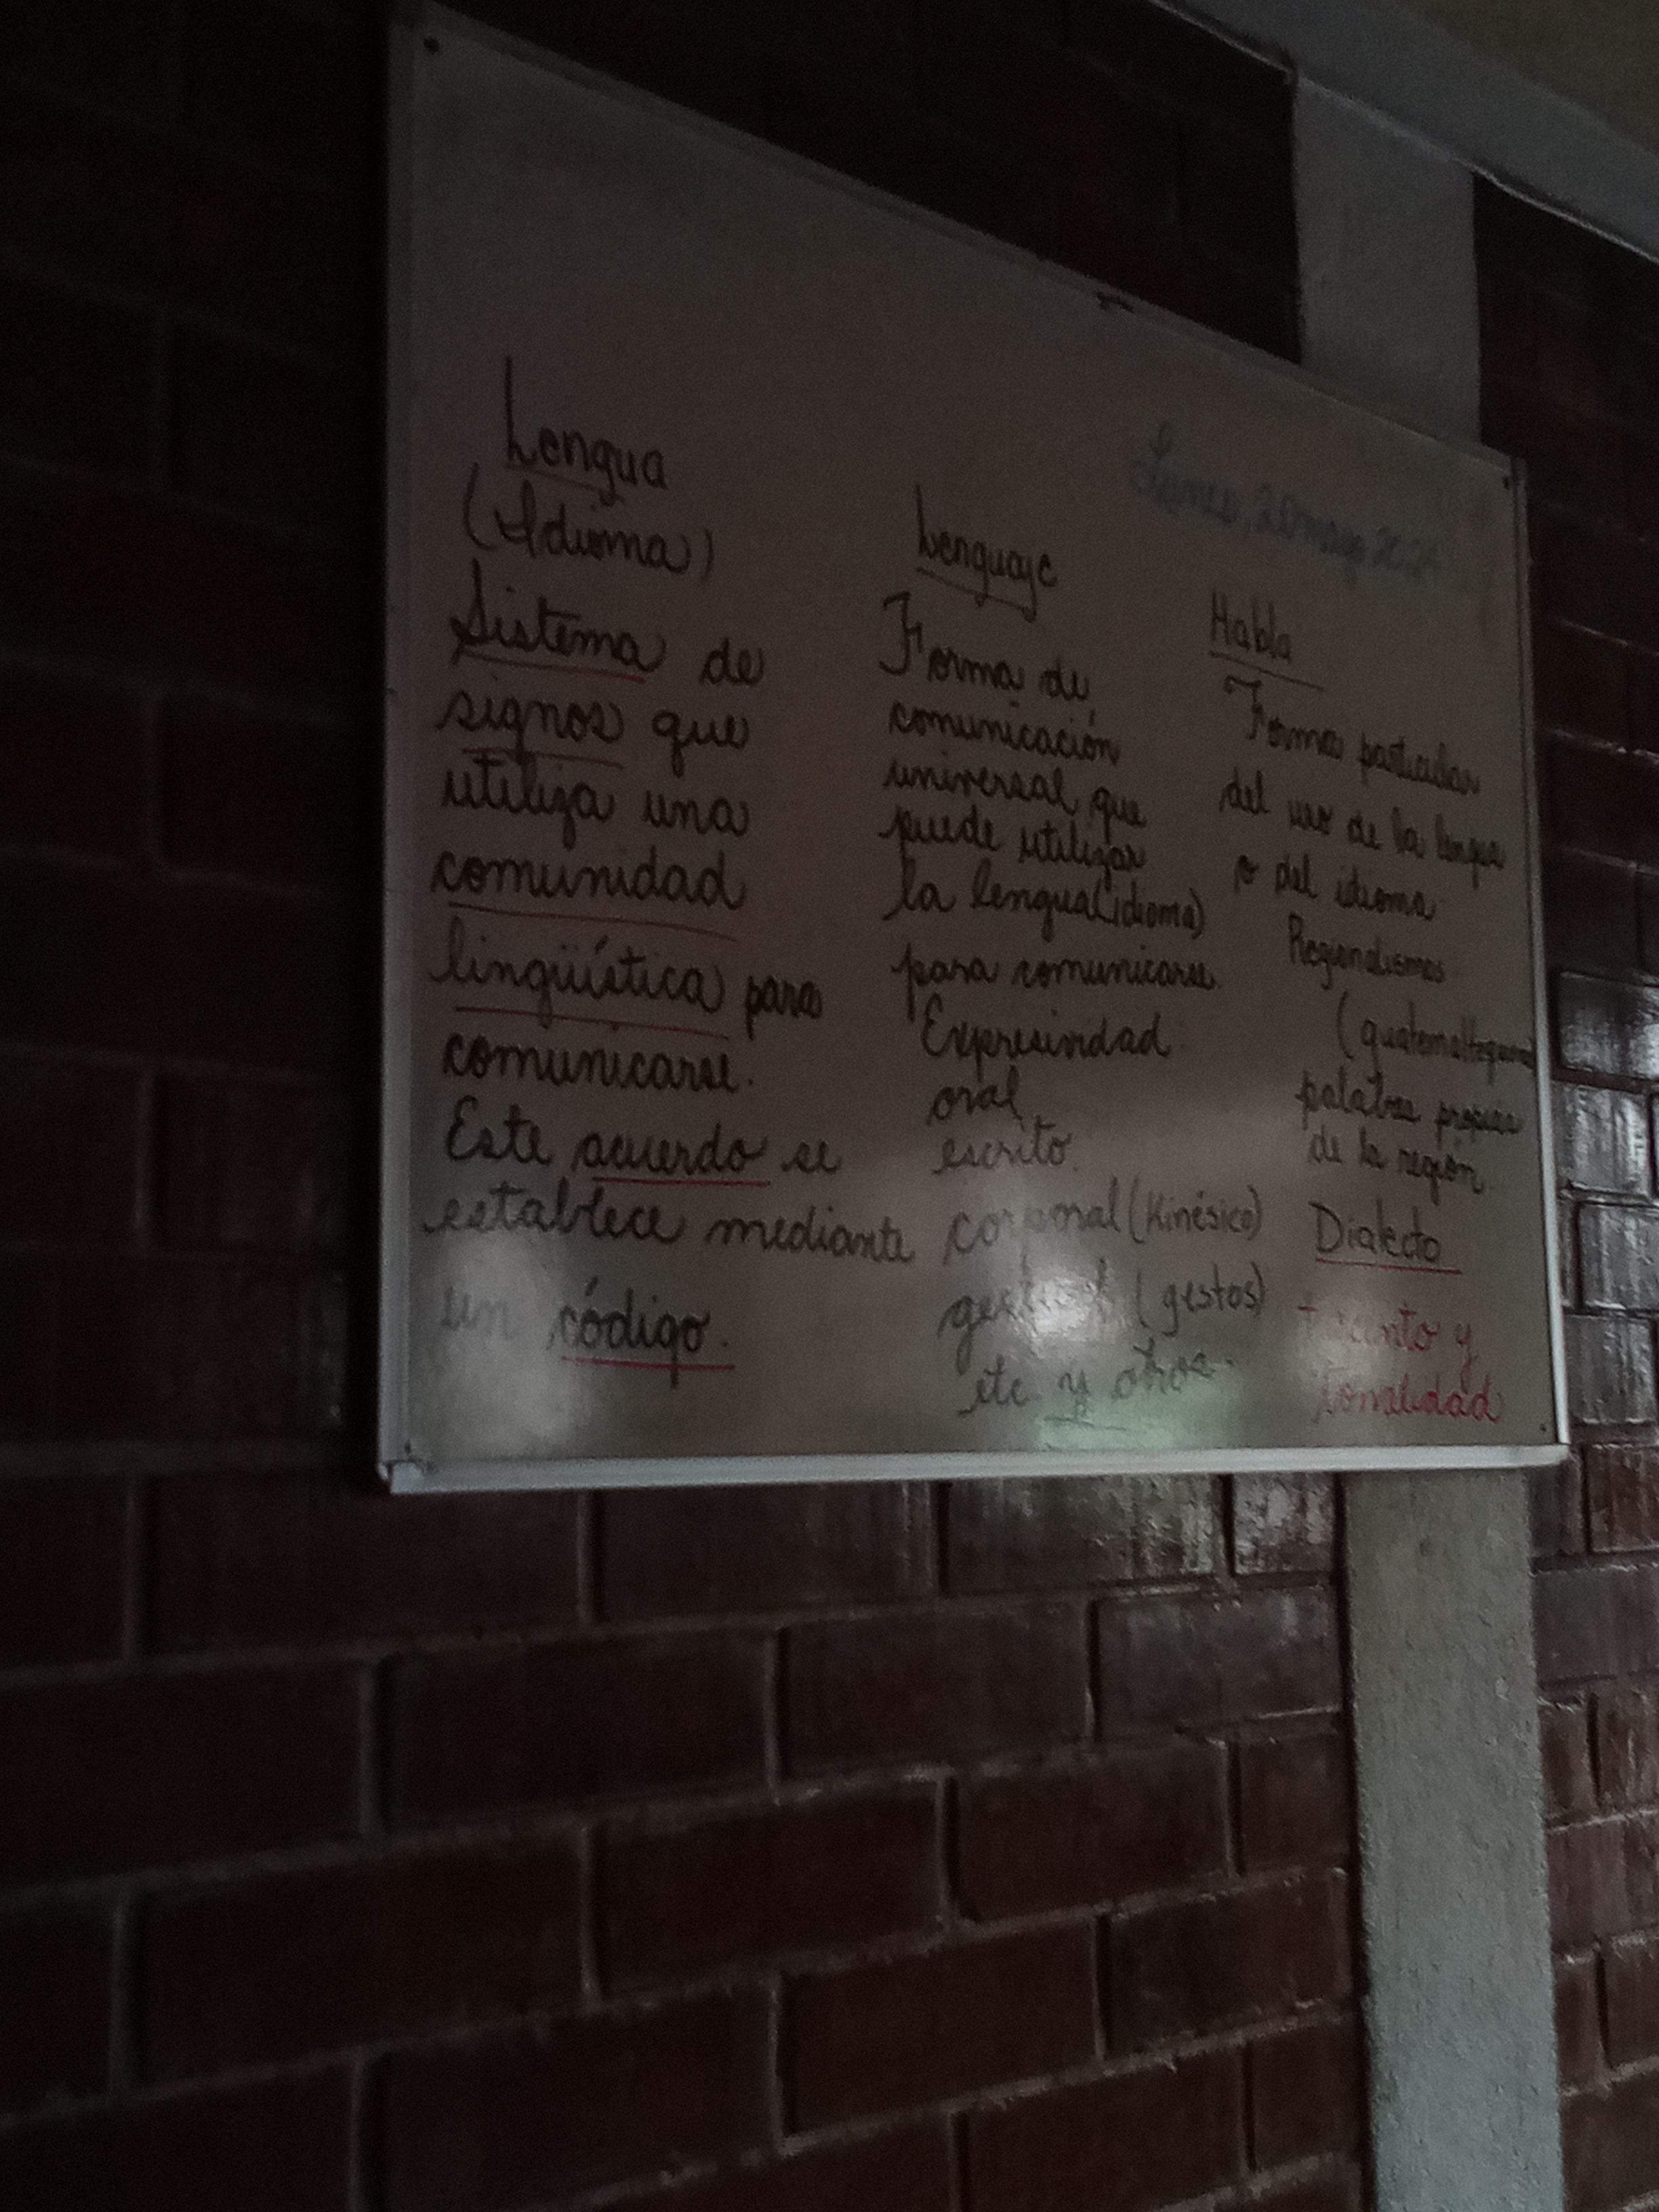 Lunes, 20 mayo 2024
Lengua
(Idioma)
Sistema de
signos que
utiliza una
comunidad
lingüística para
comunicarse.
Este acuerdo se
establece mediante
un código.
Lenguaje
Forma de
comunicación
universal que
puede utilizar
la lengua (idioma)
para comunicarse.
Expresividad
oral
escrito.
corporal (Kinésico)
(gestos)
etc y otros.
Habla
Forma particular
del uso de la lengua
o del idioma
Regionalismos
(guatemaltequismos
palabras propias
de la región.
Dialecto
y
tonalidad